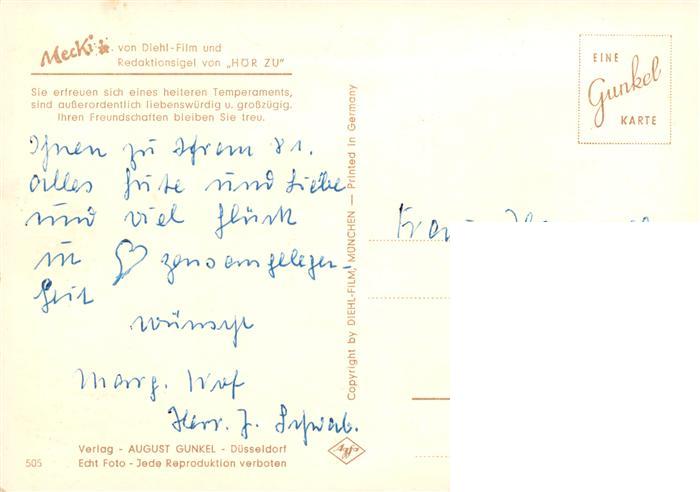 Mecki . von Diehl-Film und
Redaktionsigel von „HÖR ZU"
Sie erfreuen sich eines heiteren Temperaments,
sind außerordentlich liebenswürdig u. großzügig.
Ihren Freundschaften bleiben Sie treu.
Ihnen zu Ihrem 81.
alles Gute und Liebe
und viel Glück
in zensangelegen-
heit
wünscht
Marg.
Herr. J. Schwab.
Verlag - AUGUST GUNKEL - Düsseldorf
505 Echt Foto - Jede Reproduktion verboten
Copyright by DIEHL-FILM, MÜNCHEN — Printed in Germany
agfa
EINE
Gunkel
KARTE